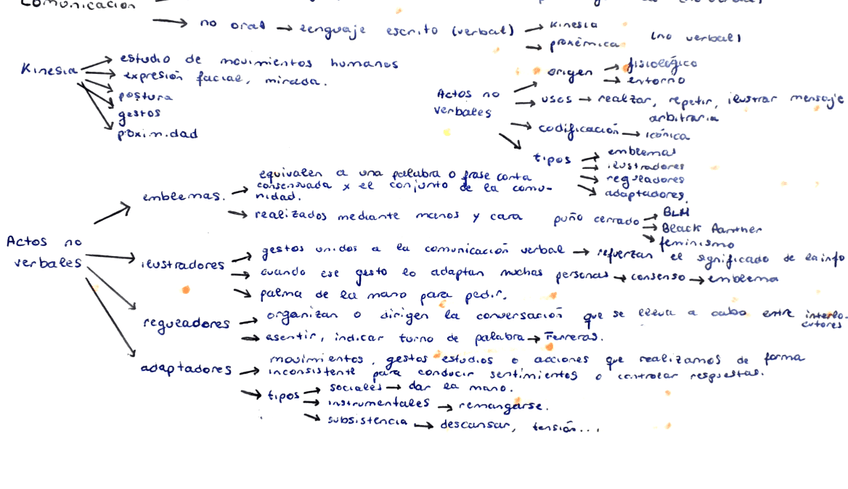 Comunicación
→ no oral → lenguaje escrito (verbal) → Kinesia
→ proxémica (no verbal)
Kinesia → estudio de movimientos humanos
→ expresión facial, mirada.
→ postura
→ gestos
→ proximidad
Actos no verbales → origen → fisiológico
→ entorno
→ usos → realzar, repetir, ilustrar mensaje
→ codificación → arbitraria
icónica
→ tipos → emblemas
→ ilustradores
→ reguladores
→ adaptadores.
Actos no verbales
emblemas. → equivalen a una palabra o frase corta
consensuada x el conjunto de la comu-
nidad.
→ realizados mediante manos y cara puño cerrado → BLM
→ Black Panther
→ feminismo
ilustradores → gestos unidos a la comunicación verbal → refuerzan el significado de la info
→ cuando ese gesto lo adaptan muchas personas → consenso → emblema
→ palma de la mano para pedir.
reguladores → organizan o dirigen la conversación que se lleva a cabo entre interlo-
cutores
→ asentir, indicar turno de palabra → Ferreras.
adaptadores → movimientos, gestos estudios o acciones que realizamos de forma
inconsistente para conducir sentimientos o controlar respuestas.
→ tipos → sociales → dar la mano.
→ instrumentales → remangarse.
→ subsistencia → descansar, tensión...